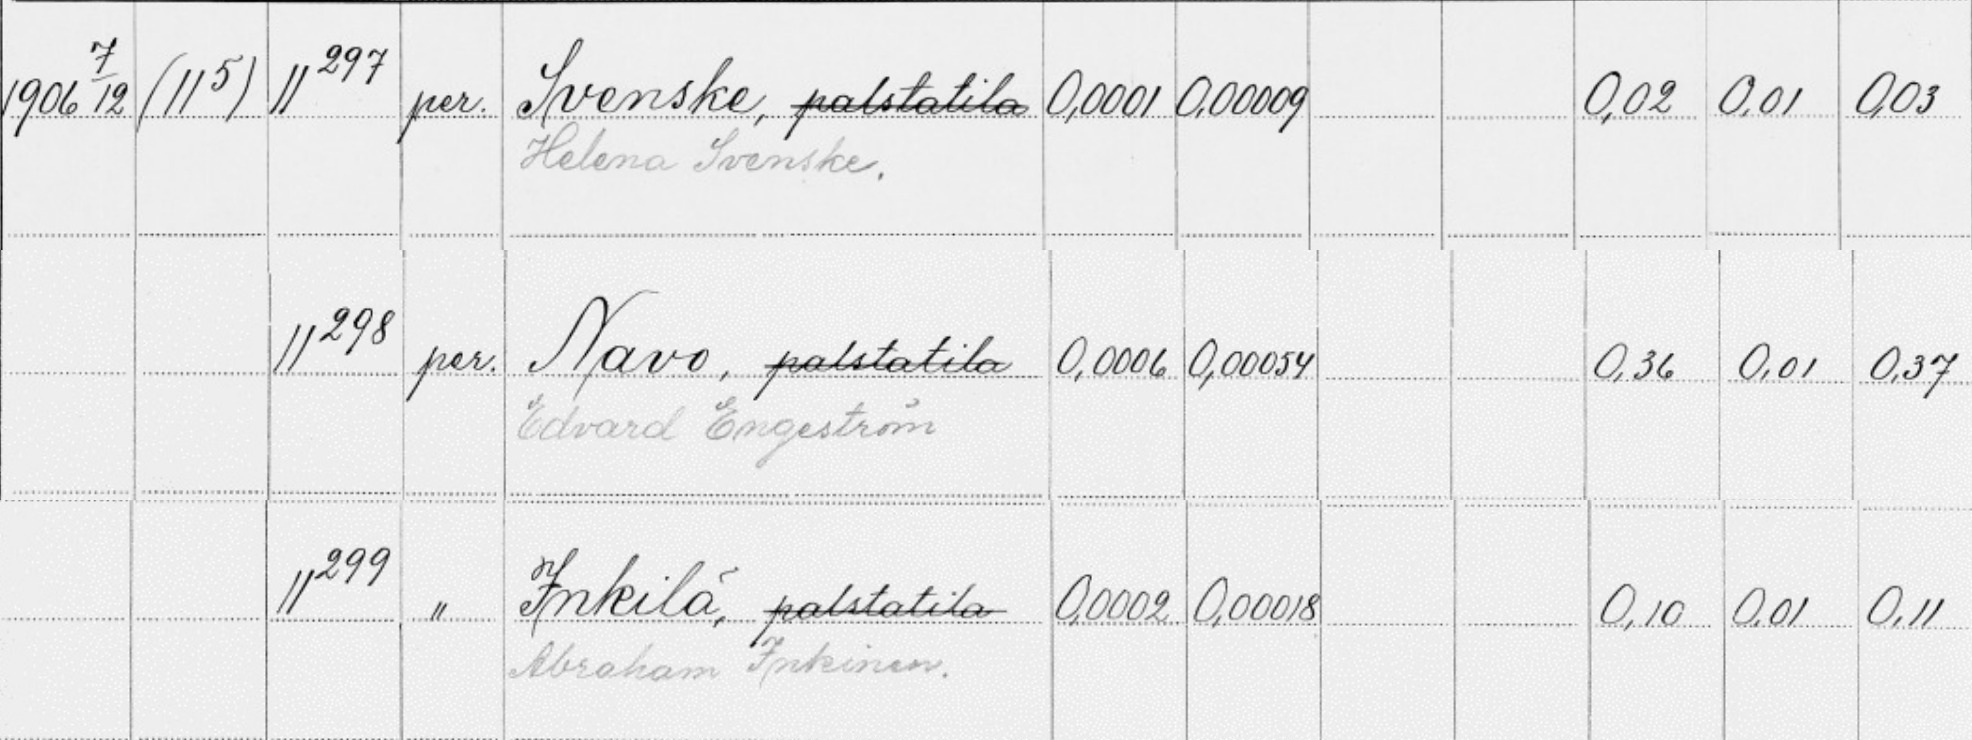 1906 7/12 (11⁵) 11²⁹⁷ per. Svenske, palstatila 0,0001 0,00009 0,02 0,01 0,03
Helena Svenske.
11²⁹⁸ per. Navo, palstatila 0,0006 0,00054 0,36 0,01 0,37
Edvard Engeström
11²⁹⁹ " Inkilä, palstatila 0,0002 0,00018 0,10 0,01 0,11
Abraham Inkinen.